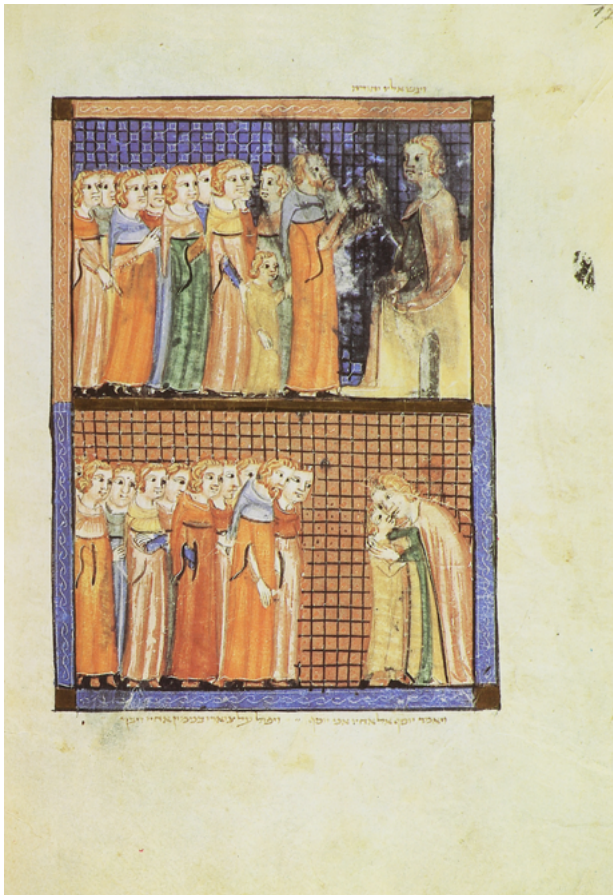 ויגש אליו יהודה
ויאמר יוסף אל אחיו אני יוסף - ויפול על צוארי בנימין אחיו ויבך